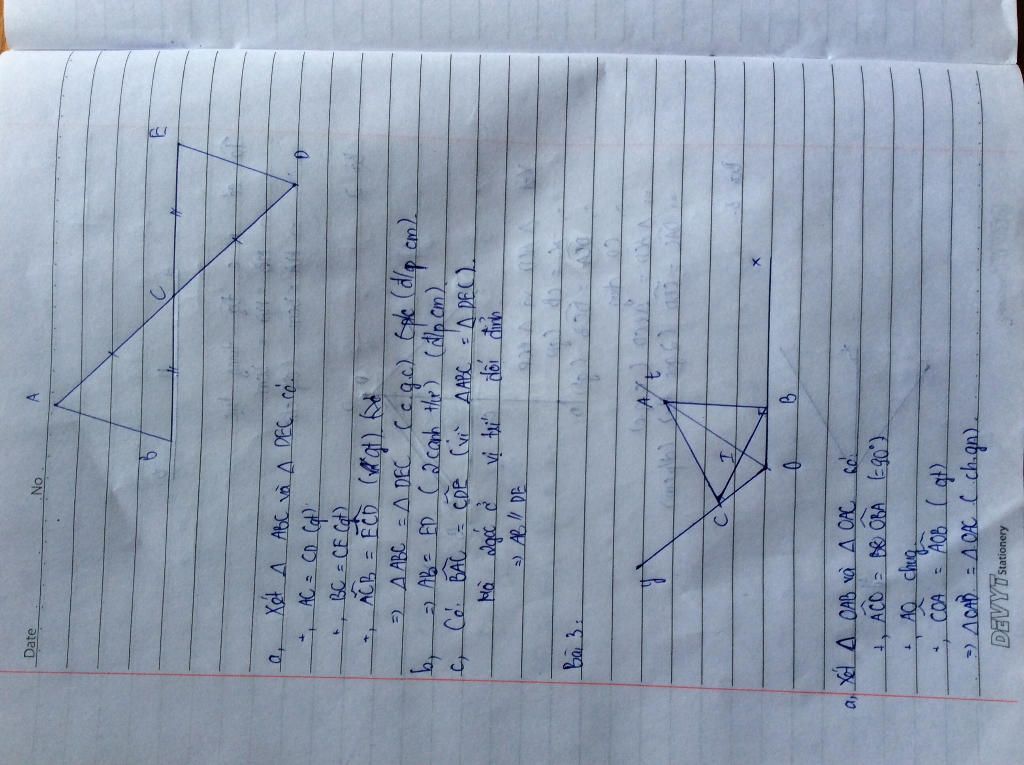 Date No
A
B
C
E
D
a, Xét Δ ABC và Δ DEC có:
+, AC = CD (gt)
+, BC = CE (gt)
+, ACB = ECD (gt)
=> Δ ABC = Δ DEC (c.g.c) (đ/p cm).
b, => AB = ED (2 cạnh t/ư) (đ/p cm)
c, Có: BAC = CDE (vì Δ ABC = Δ DEC).
Mà 2 góc ở vị trí đối đỉnh
=> AB // DE
Bài 3:
y
C
I
A
t
O
B
x
a, Xét Δ OAB và Δ OAC có:
+, ACO = OBA (=90°)
+, AO chung
+, COA = AOB (gt)
=> Δ OAB = Δ OAC (ch.gn)
DEVYT Stationery